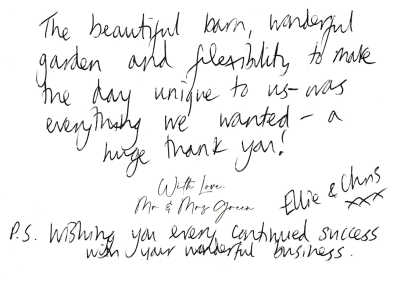 The beautiful barn, wonderful
garden and flexibility to make
the day unique to us - was
everything we wanted - a
huge thank you!
With Love,
Mr & Mrs Green
Ellie & Chris
xxx
P.S. Wishing you every continued success
with your wonderful business.